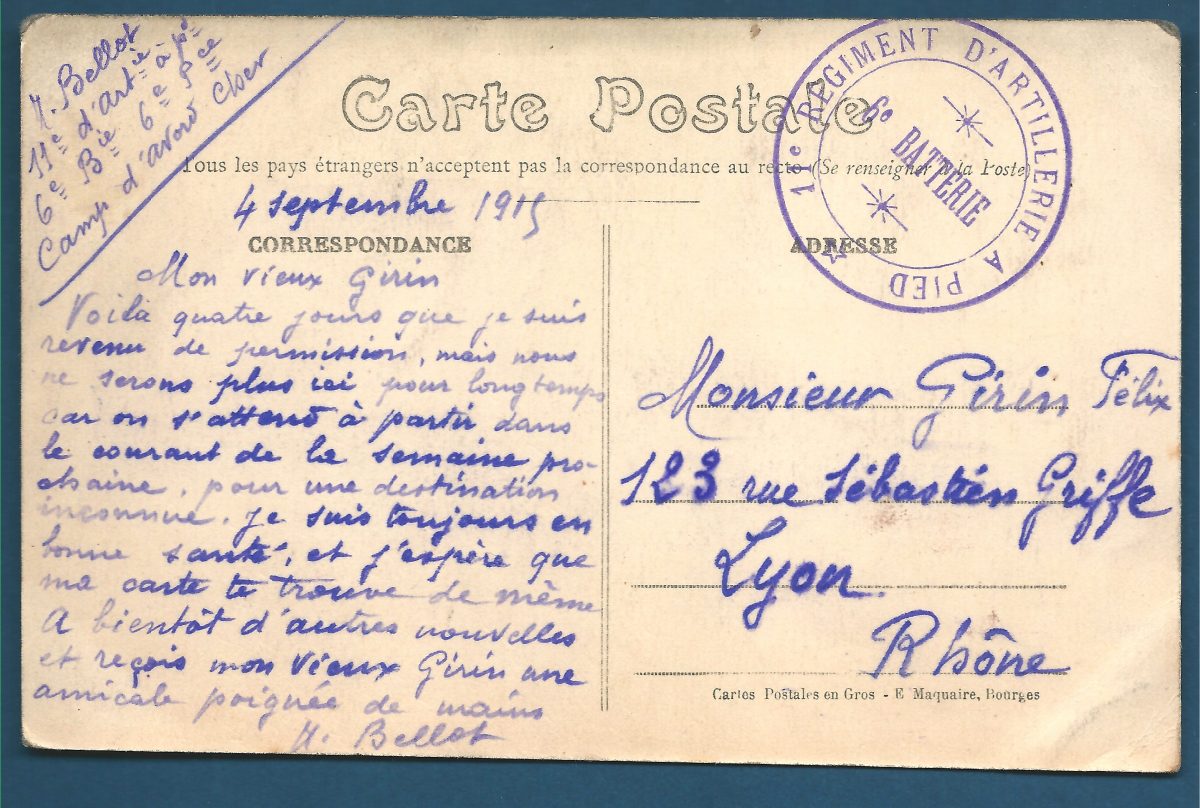 H. Bellot
11e d'artie à pd
6e Bie 6e Pce
Camp d'avord Cher
Carte Postale
Tous les pays étrangers n'acceptent pas la correspondance au recto (Se renseigner à la Poste)
11e REGIMENT D'ARTILLERIE A PIED
6e BATTERIE
4 septembre 1915
CORRESPONDANCE
Mon vieux Girin
Voilà quatre jours que je suis
revenu de permission, mais nous
ne serons plus ici pour longtemps
car on s'attend à partir dans
le courant de la semaine pro-
chaine, pour une destination
inconnue. Je suis toujours en
bonne santé, et j'espère que
ma carte te trouve de même
A bientôt d'autres nouvelles
et reçois mon vieux Girin une
amicale poignée de mains
H. Bellot
ADRESSE
Monsieur Girin Félix
123 rue Sébastien Griffe
Lyon
Rhône
Cartes Postales en Gros - E Maquaire, Bourges